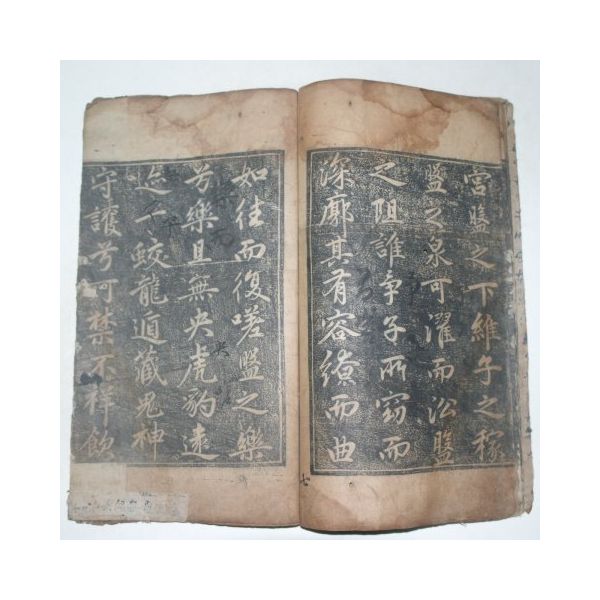 宮盤之下維子之稼
盤之泉可濯而沿盤
之阻誰爭子所窈而
深廓其有容繚而曲
七
如往而復嗟盤之樂
兮樂且無央虎豹遠
迹兮蛟龍遁藏鬼神
守護兮呵禁不祥飲